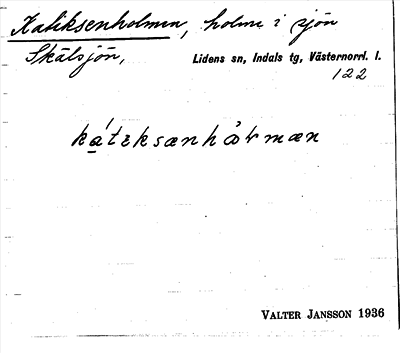 Katiksenholmen, holme i sjön
Skälsjön, Lidens sn, Indals tg, Västernorrl. l.
122
VALTER JANSSON 1936